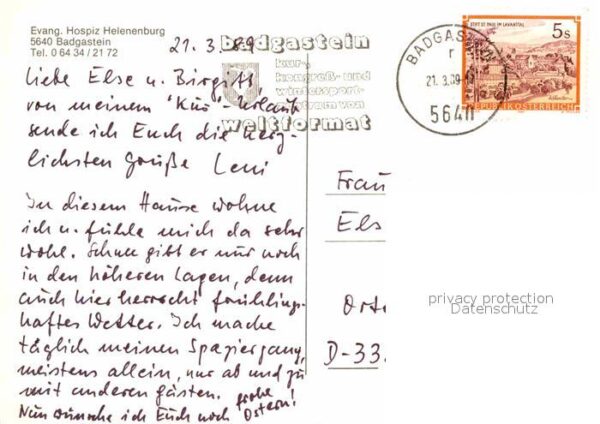 Evang. Hospiz Helenenburg
5640 Badgastein
Tel. 0 64 34 / 21 72
21.3.89
badgastein
kur-
kongreß- und
wintersport-
zentrum von
weltformat
BADGASTEIN
r
21. 3. 89
5640
STIFT ST. PAUL IM LAVANTTAL
5 s
REPUBLIK ÖSTERREICH
Liebe Else u. Birgitt,
von meinem "Kur" Urlaub
sende ich Euch die herz-
lichsten Grüße Leni
In diesem Hause wohne
ich u. fühle mich da sehr
wohl. Schnee gibt es nur noch
in den höheren Lagen, denn
auch hier herrscht frühlings-
haftes Wetter. Ich mache
täglich meinen Spaziergang,
meistens allein, nur ab und zu
mit anderen Gästen.
Nun wünsche ich Euch noch frohe
Ostern!
Frau
Els
Orte
D-33.
privacy protection
Datenschutz